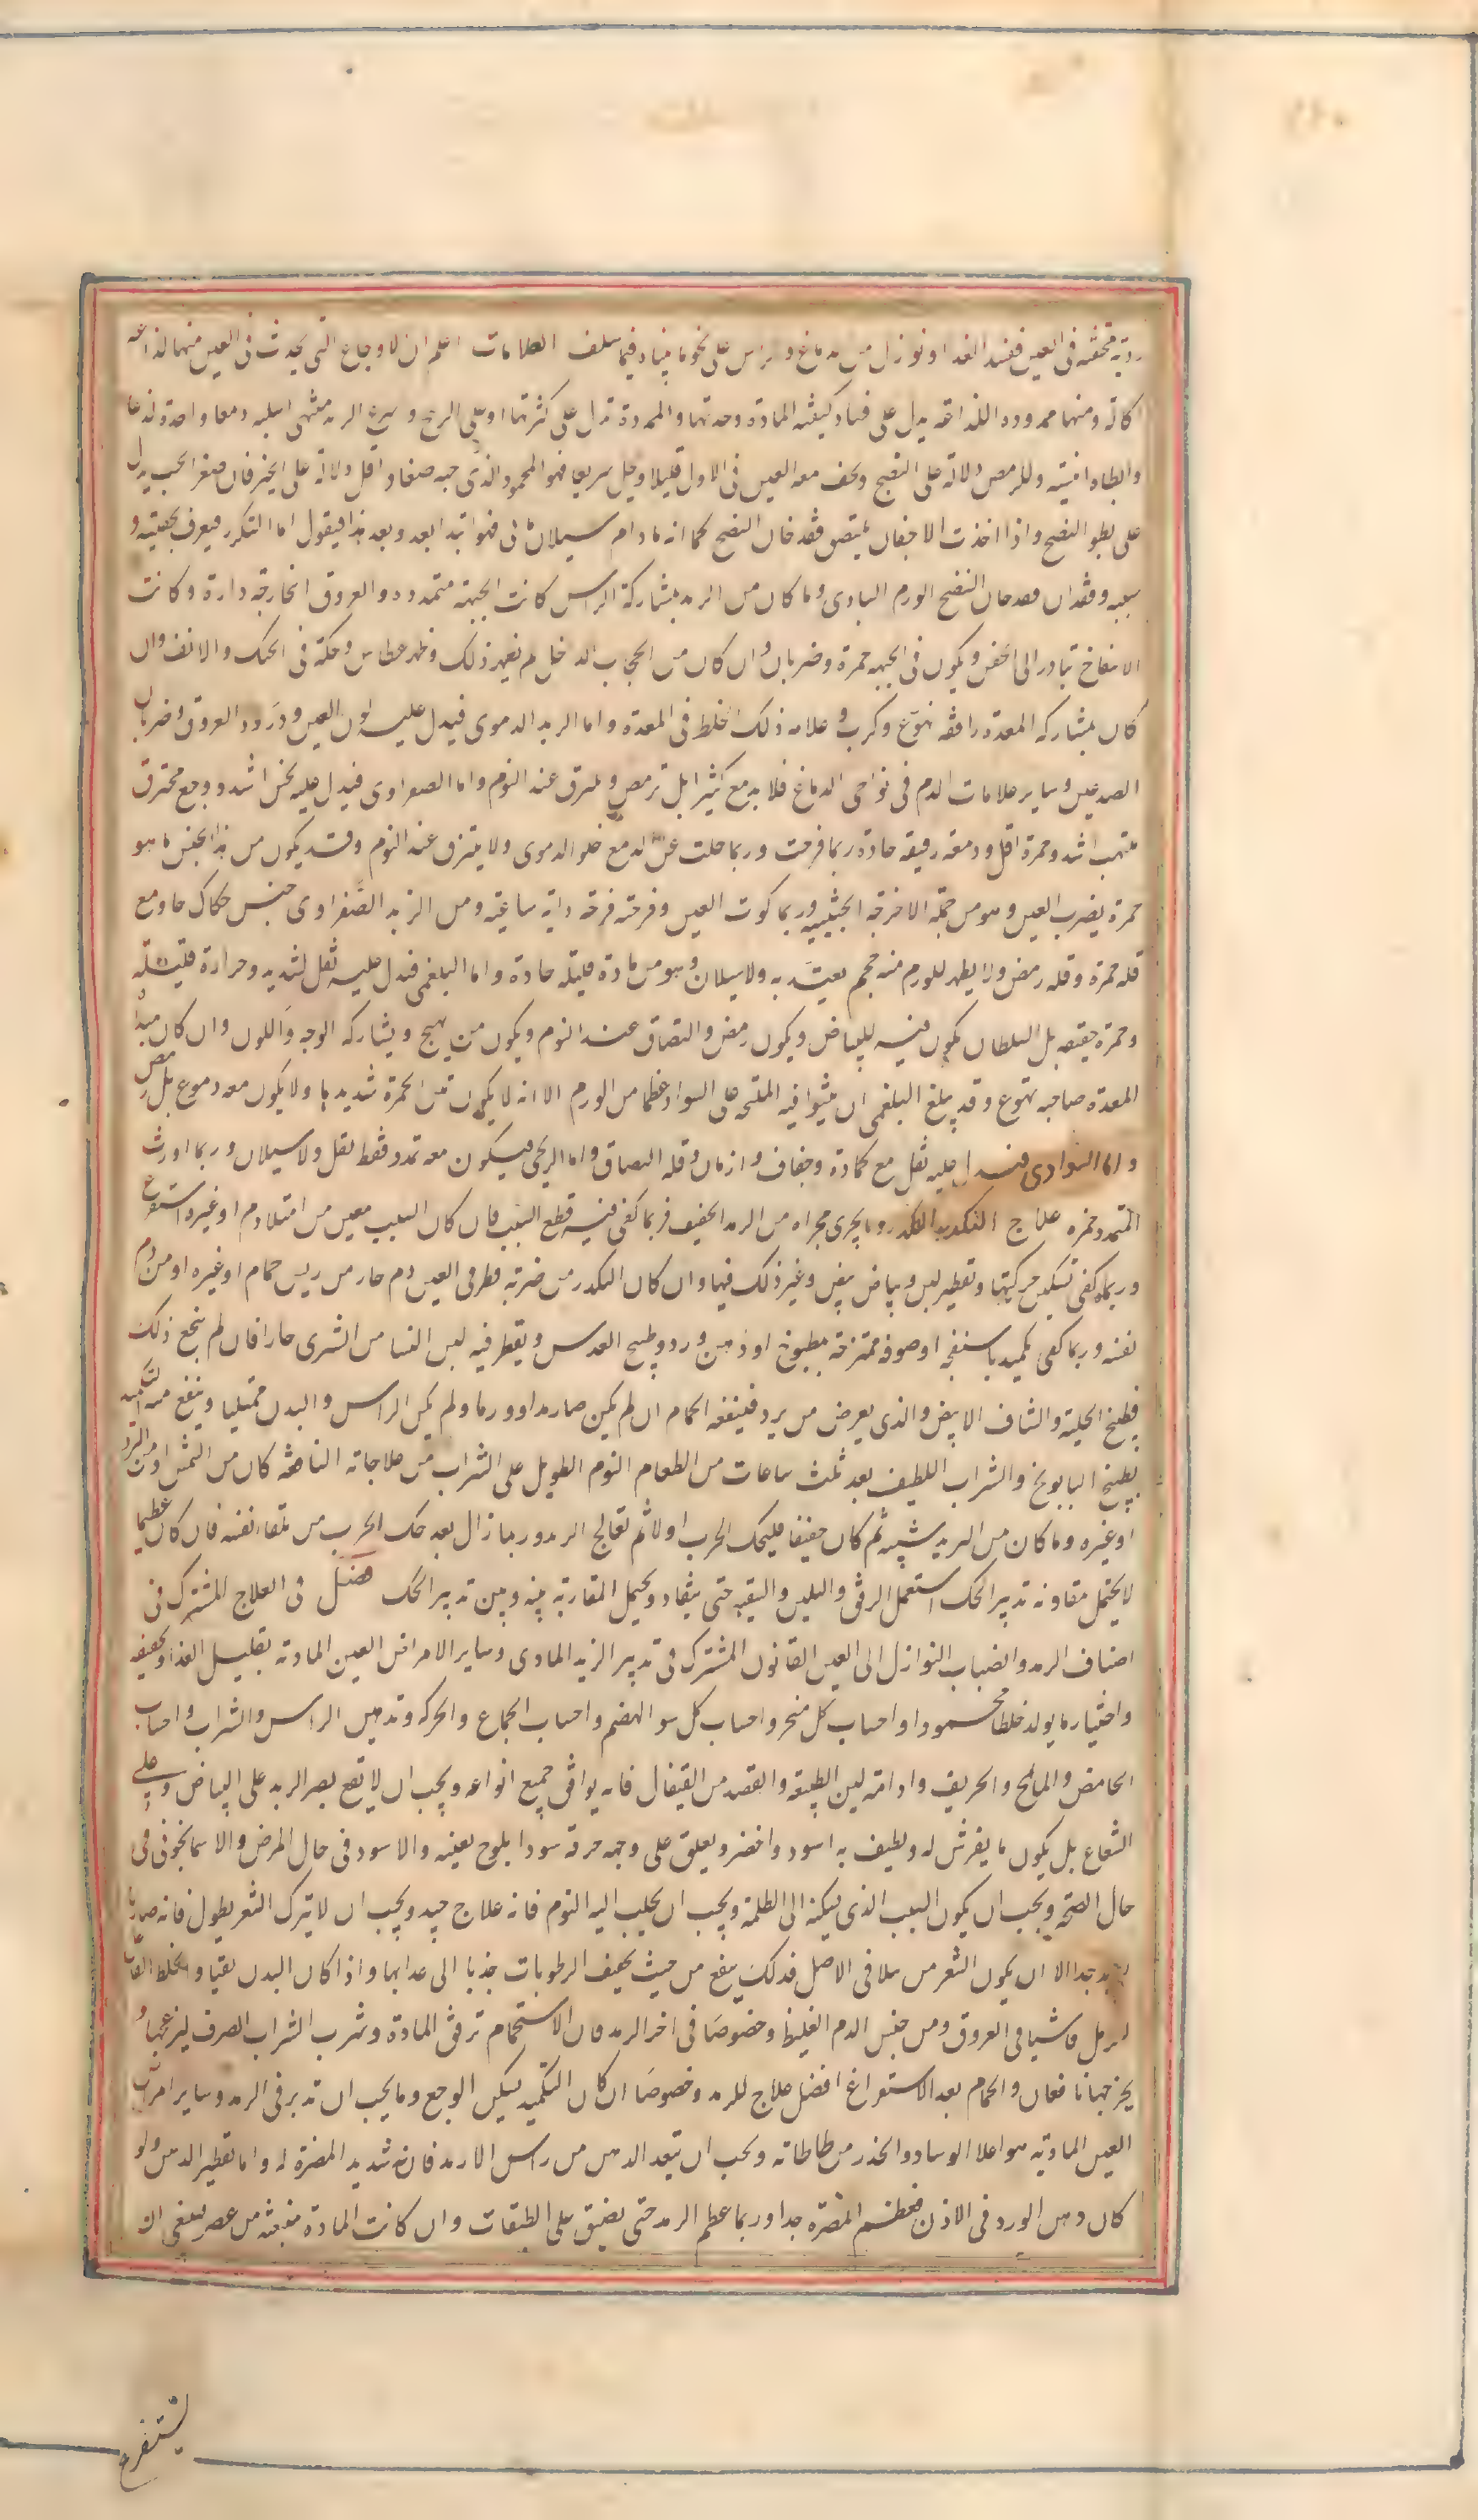 ردية محتقنة فى العين فتفسد الغذا او نوازل من الدماغ والراس على نحو ما بيناه فيما سلف العلامات اعلم ان الاوجاع التى يحدث فى العين منها لذاعه
اكالة ومنها ممدودة اللذاعة يدل على فساد كيفية المادة وحدتها والممددة تدل على كثرتها او على الريح و اسرع الرمد منتهى اسيله دمعا واحده لذعا
وابطاه ايبسه وللرمص دلالة على النضج ويخف معه العين فى الاول قليلا ويحل سريعا فهو المحمود الذى حبه صغار اقل دلالة على الخير فان صغر الحب يدل
على بطو النضج واذا اخذت الاجفان يلتصق فقد حان النضج كما انه ما دام سيلان مائى فهو ابتدا بعد وبعد هذا فيقول اما التكدر فيعرف بخفته و
سببه وفقدان الورم البادى وما كان من الرمد بمشاركة الراس كانت الجبهة متمددة والعروق الخارجة دارة وكانت
الانتفاخ تبادر الى الجفن ويكون فى الجبهه حمرة وضربان وان كان من الحجاب الداخل لم يظهر ذلك وظهر عطاس وحكة فى الحنك والانف وان
كان بمشاركه المعدة رافقه تهوع وكرب و علامه ذلك الخلط فى المعدة واما الرمد الدموى فيدل عليه لون العين ودرور العروق وضربان
الصدغين وساير علامات الدم فى نواحى الدماغ فلا يدمع كثيرا بل ترمص ويلتزق عند النوم واما الصفراوى فيدل عليه نخس اشد ووجع محترق
ملتهب اشد وحمرة اقل ودمعة رقيقه حادة ربما قرحت وربما خلت عن الدمع خلو الدموى ولا يلتزق عند النوم وقد يكون من هذا الجنس ما هو
حمرة يضرب العين وهو من جملة الخبيثة وربما كوت العين وقرحته قرحة ساعية ومن الرمد الصفراوى جنس حكاك جاف مع
قله حمرة وقله رمص ولا يظهر للورم منه حجم يعتد به ولا سيلان وهو من مادة قليلة حادة واما البلغمى فيدل عليه ثقل شديد وحرارة قليلة
وحمرة خفيفه بل السلطان يكون فيه للبياض ويكون رمص والتصاق عند النوم ويكون مع تهيج ويشاركه الوجه واللون وان كان مبداه
المعدة صاحبه تهوع وقد يبلغ البلغمى ان ينتو فيه الملتحمه على السواد غطا من الورم الا انه لا يكون بين الحمرة شديدها ولا يكون معه دموع بل رمص
واما السوداوى فيدل عليه ثقل مع كمادة وجفاف وازمان وقله التصاق واما الريحى فيكون معه تمدد فقط بلا ثقل ولا سيلان وربما اورث
التمدد حمرة علاج التكدر وما يجرى مجراه من الرمد الخفيف فربما كفى فيه قطع السبب فان كان السبب معين من امتلا دم او غيره استفرغ
وربما كفى تسكين حركتها وتقطير لبن وبياض بيض وغير ذلك فيها وان كان التكدر من ضربة قطر فى العين دم حار من ريش حمام او غيره او من دم
نفسه وربما كفى تكميد باسفنجة او صوفة مطبوخ او دهن ورد وطبيخ العدس ويقطر فيه لبن النسا من الثدى حارا فان لم ينجع ذلك
فطبيخ الحلبة والشياف الابيض والذى يعرض من برد فينفعه الحمام ان لم يكن صار رمدا وورما ولم يكن الراس والبدن ممتليا وينفع منه التكميد
بطبيخ البابونج والشراب اللطيف بعد ثلث ساعات من الطعام النوم الطويل على الشراب من علاجاته النافعة كان من الشمس او من البرد
او غيره وما كان من الرمد سببه ثم كان خفيفا فليحك الجرب اولا ثم تعالج الرمد وربما زال بعد حك الجرب من تلقاء نفسه فان كان عظيما
لا يحتمل مقاونة تدبير الحك استعمل الرفق والتليين والتنقية حتى ينقاد ويحتمل المقارنة بينه وبين تدبير الحك فصل فى العلاج المشترك فى
اصناف الرمد وانصباب النوازل الى العين القانون المشترك فى تدبير الرمد المادى وساير الامراض العين المادية بقليل الغذا وتخفيفه
واختيار ما يولد خلطا محمودا واجتناب كل مبخر واجتناب كل سو الهضم واجتناب الجماع والحركه وتدهين الراس والشراب واجتناب
الحامض والمالح والحريف وادامة لين الطبيعة والفصد من القيفال فانه يوافق جميع انواعه ويجب ان لا يقع بصر الرمد على البياض وعلى
الشعاع بل يكون ما يفرش له ويطيف به اسود واخضر ويعلق على وجهه خرقة سودا يلوح بعينه والاسود فى حال المرض والاسمانجونى فى
حال الصحة ويجب ان يكون البيت الذى يسكنه الى الظلمة ويجب ان يجلب اليه النوم فانه علاج جيد ويجب ان لا يترك الشعر يطول فانه ضار
بالرمد جدا الا ان يكون الشعر مرسلا فى الاصل فذلك ينفع من حيث يجفف الرطوبات جذبا الى غذائها واذا كان البدن نقيا والخلط
ناشبا فى العروق ومن جنس الدم الغليظ وخصوصا فى اخر الرمد فان الاستحمام ترقق المادة وشرب الشراب الصرف ليزعجها و
يخرجها نافعان والحمام بعد الاستفراغ افضل علاج للرمد وخصوصا ان كان التكميد يسكن الوجع ومما يجب ان تدبر فى الرمد وساير امراض
العين المادية هو اعلا الوساد والحذر من طاطاته ويجب ان يبعد الدهن من راس الارمد فانه شديد المضرة له واما تقطير الدهن ولو
كان دهن الورد فى الاذن فعظيم المضرة جدا وربما عظم الرمد حتى يضيق على الطبقات وان كانت المادة منبعثة من عضو ينبغى ان
يستفرغ